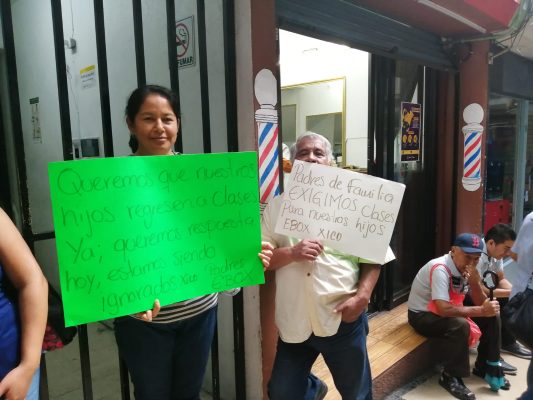 Queremos que nuestros
hijos regresen a clases
Ya, queremos respuesta
hoy, estamos siendo
ignorados XICO Padres
EBOX
Padres de Familia
EXIGIMOS Clases
Para nuestros hijos
EBOX XICO
FUMAR